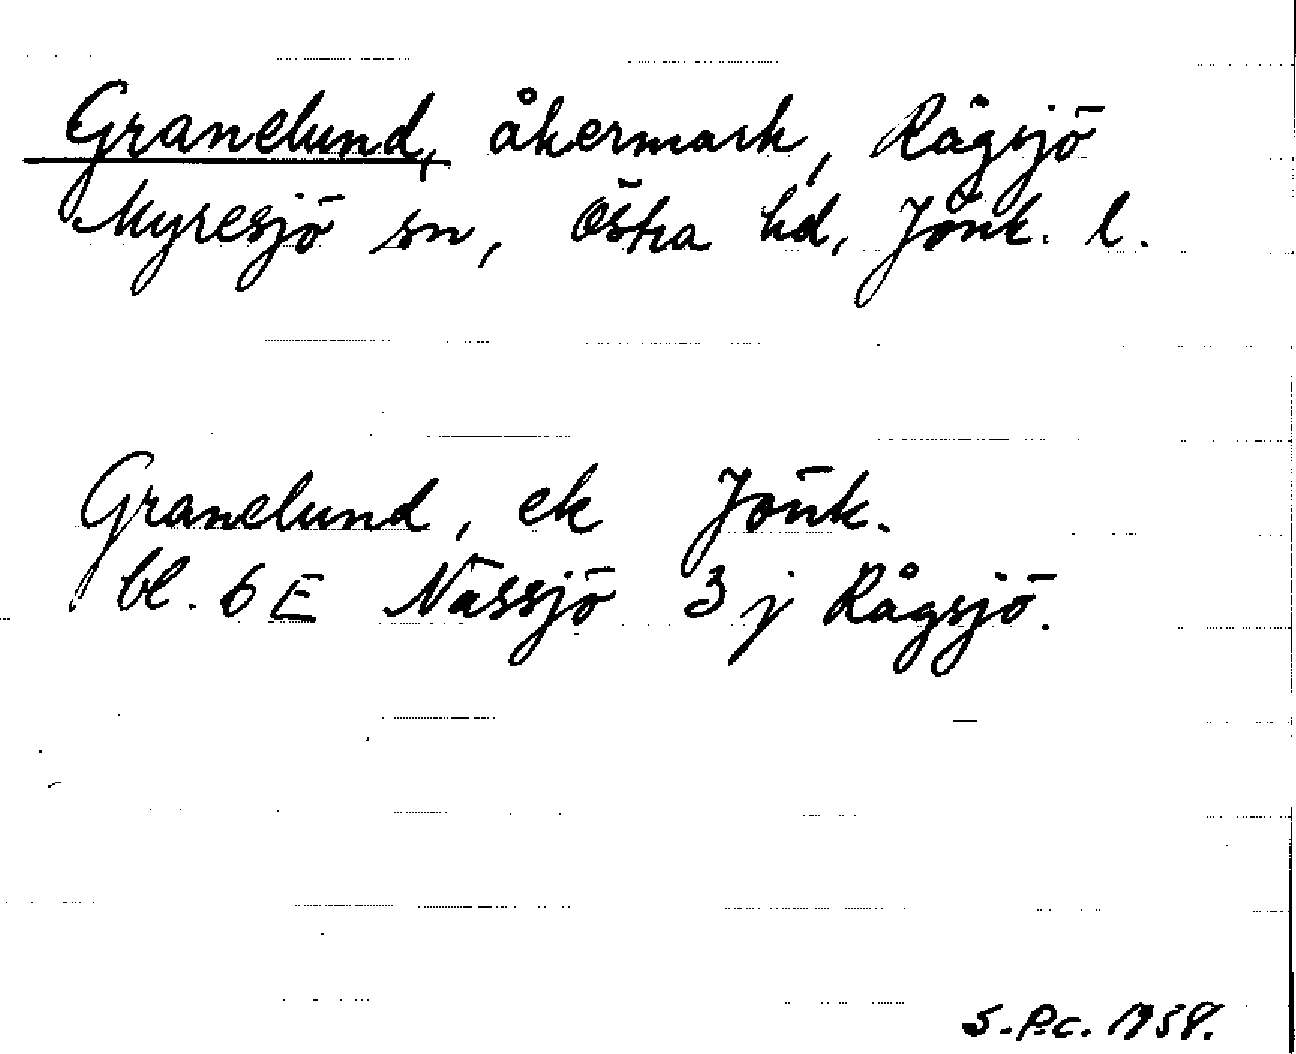 Granelund, åkermark, Rågsjö
Myresjö sn, Östra hd, Jönk. l.
Granelund, ek Jönk.
bl. 6 E Nässjö 3 j Rågsjö.
S.P.c. 1958.